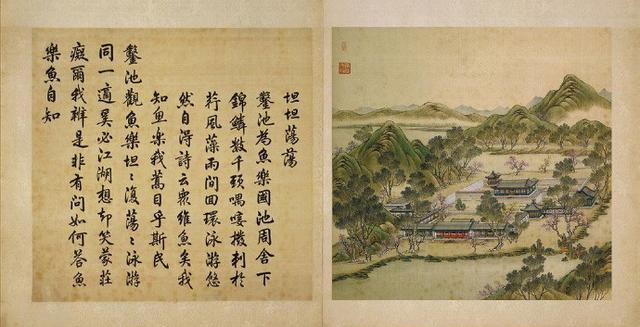 坦坦蕩蕩
鑿池為魚樂國池周舍下
錦鱗數千頭喁唼撥剌於
荇風藻雨間回環泳游悠
然自得詩云衆維魚矣我
知魚樂我蒿目乎斯民
鑿池觀魚樂坦〻復蕩〻泳游
同一適奚必江湖想却笑蒙莊
癡爾我辨是非有問如何答魚
樂魚自知